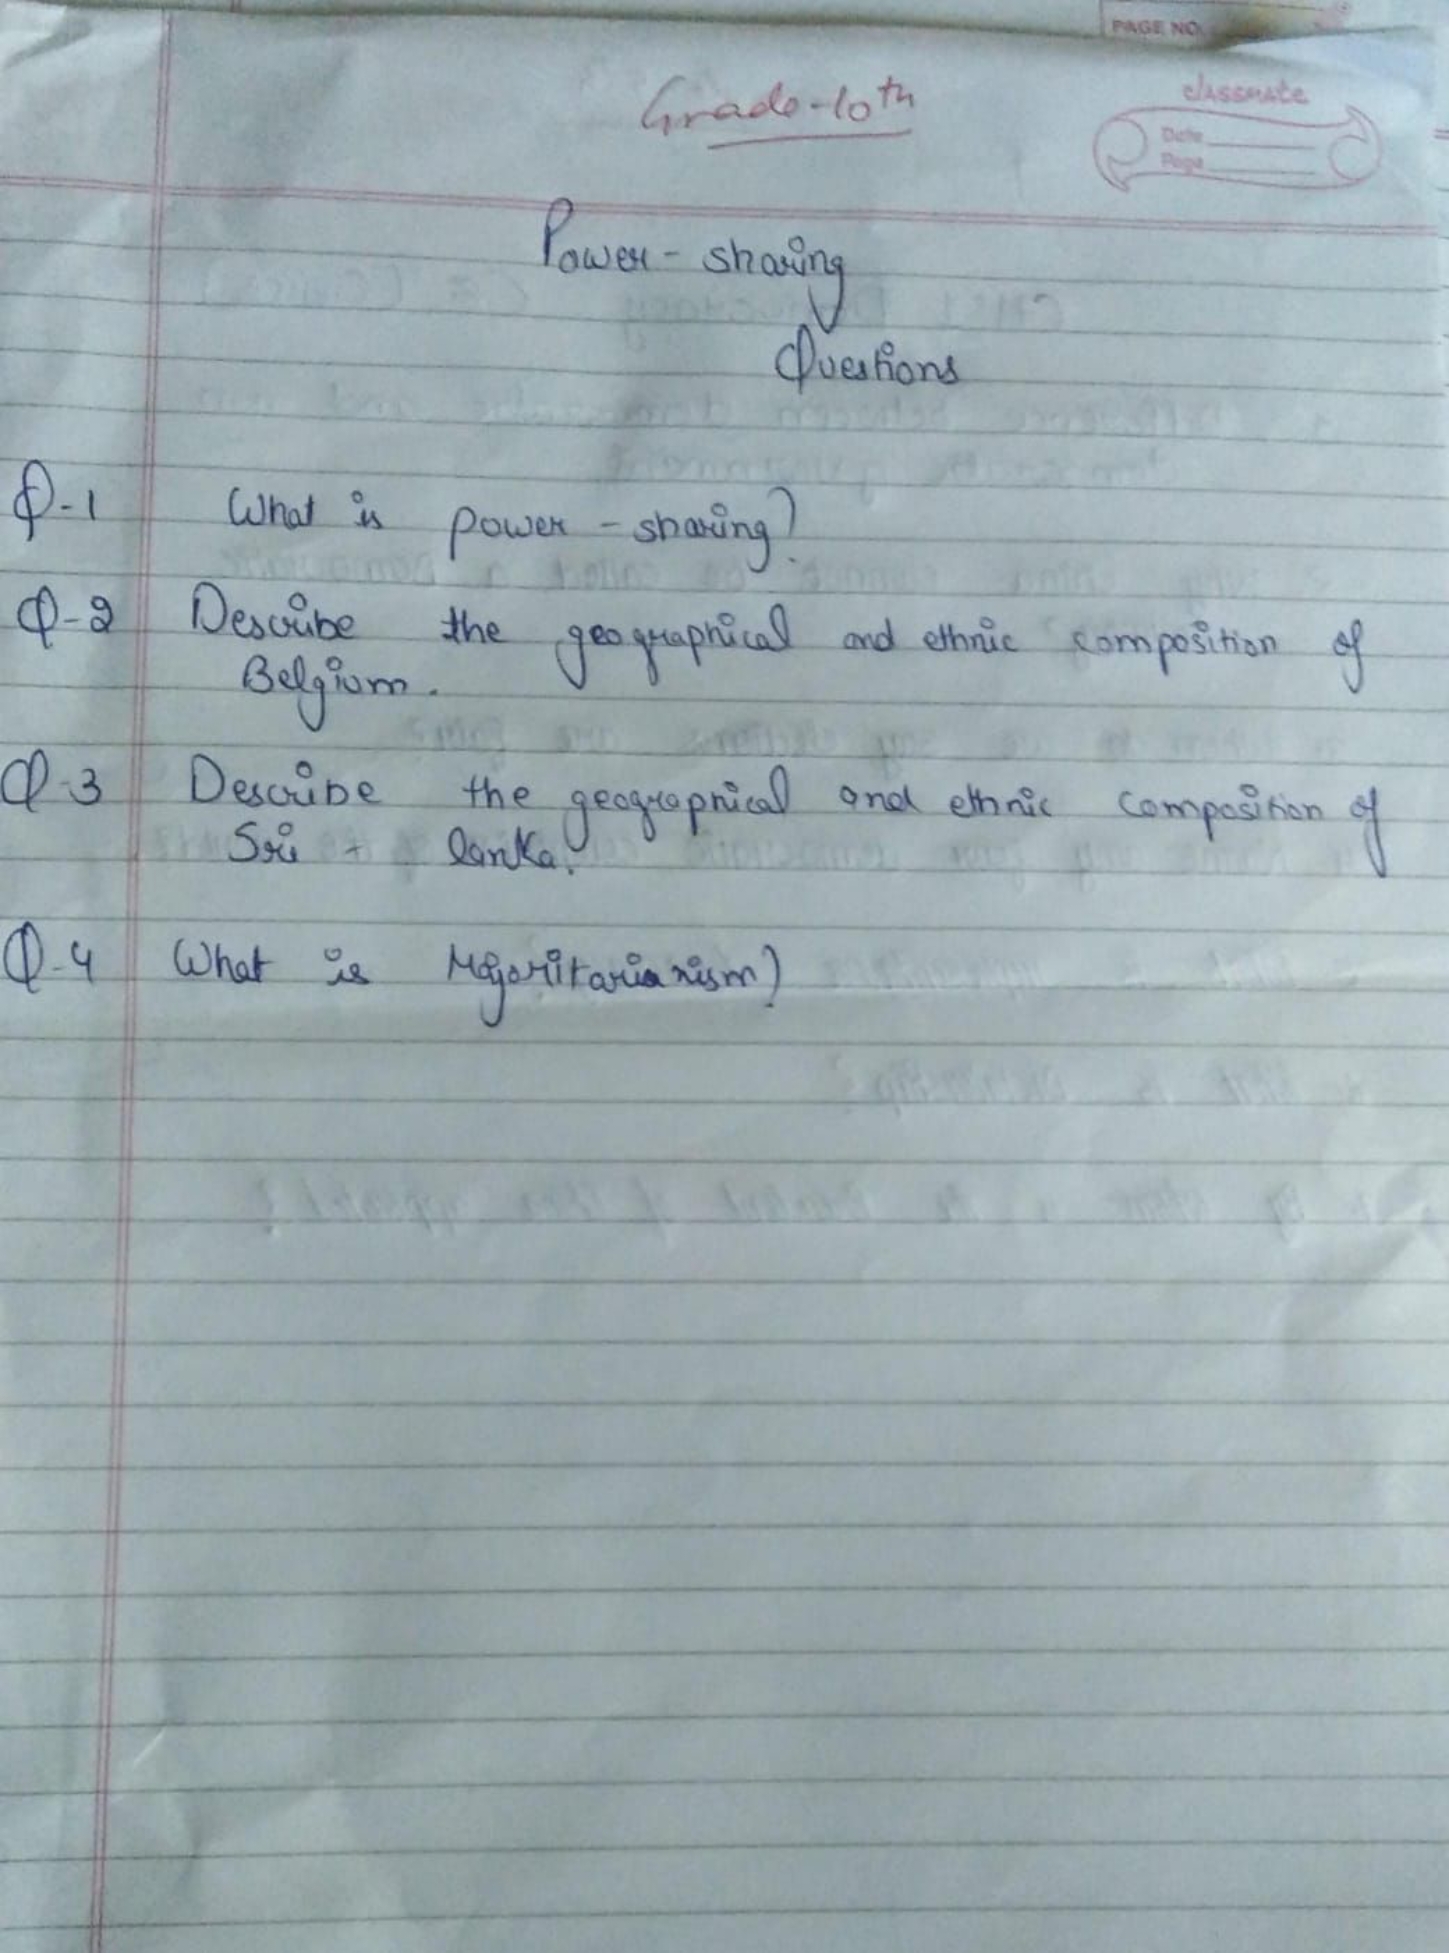 PAGE NO.
Grade-10th
classmate
Date
Page
Power - sharing
Questions
Q-1 What is power - sharing?
Q-2 Describe the geographical and ethnic composition of
Belgium.
Q-3 Describe the geographical and ethnic composition of
Sri - lanka.
Q-4 What is Majoritarianism?